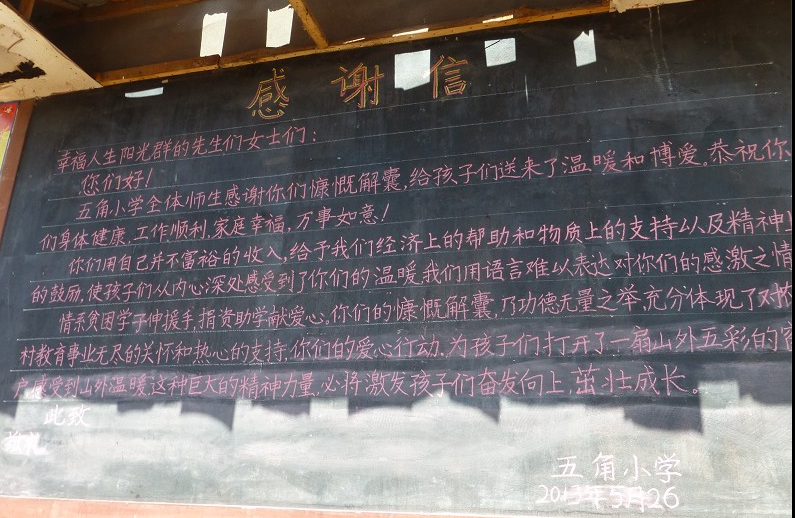 感谢信
幸福人生阳光群的先生们女士们：
您们好！
五角小学全体师生感谢你们慷慨解囊,给孩子们送来了温暖和博爱.恭祝你
们身体健康,工作顺利,家庭幸福,万事如意！
你们用自己并不富裕的收入,给予我们经济上的帮助和物质上的支持以及精神上
的鼓励,使孩子们从内心深处感受到了你们的温暖,我们用语言难以表达对你们的感激之情
情系贫困学子伸援手,捐资助学献爱心,你们的慷慨解囊,乃功德无量之举,充分体现了对农
村教育事业无尽的关怀和热心的支持.你们的爱心行动,为孩子们打开了一扇山外五彩的窗
户感受到山外温暖,这种巨大的精神力量,必将激发孩子们奋发向上,茁壮成长。
此致
敬礼
五角小学
2013年5月26